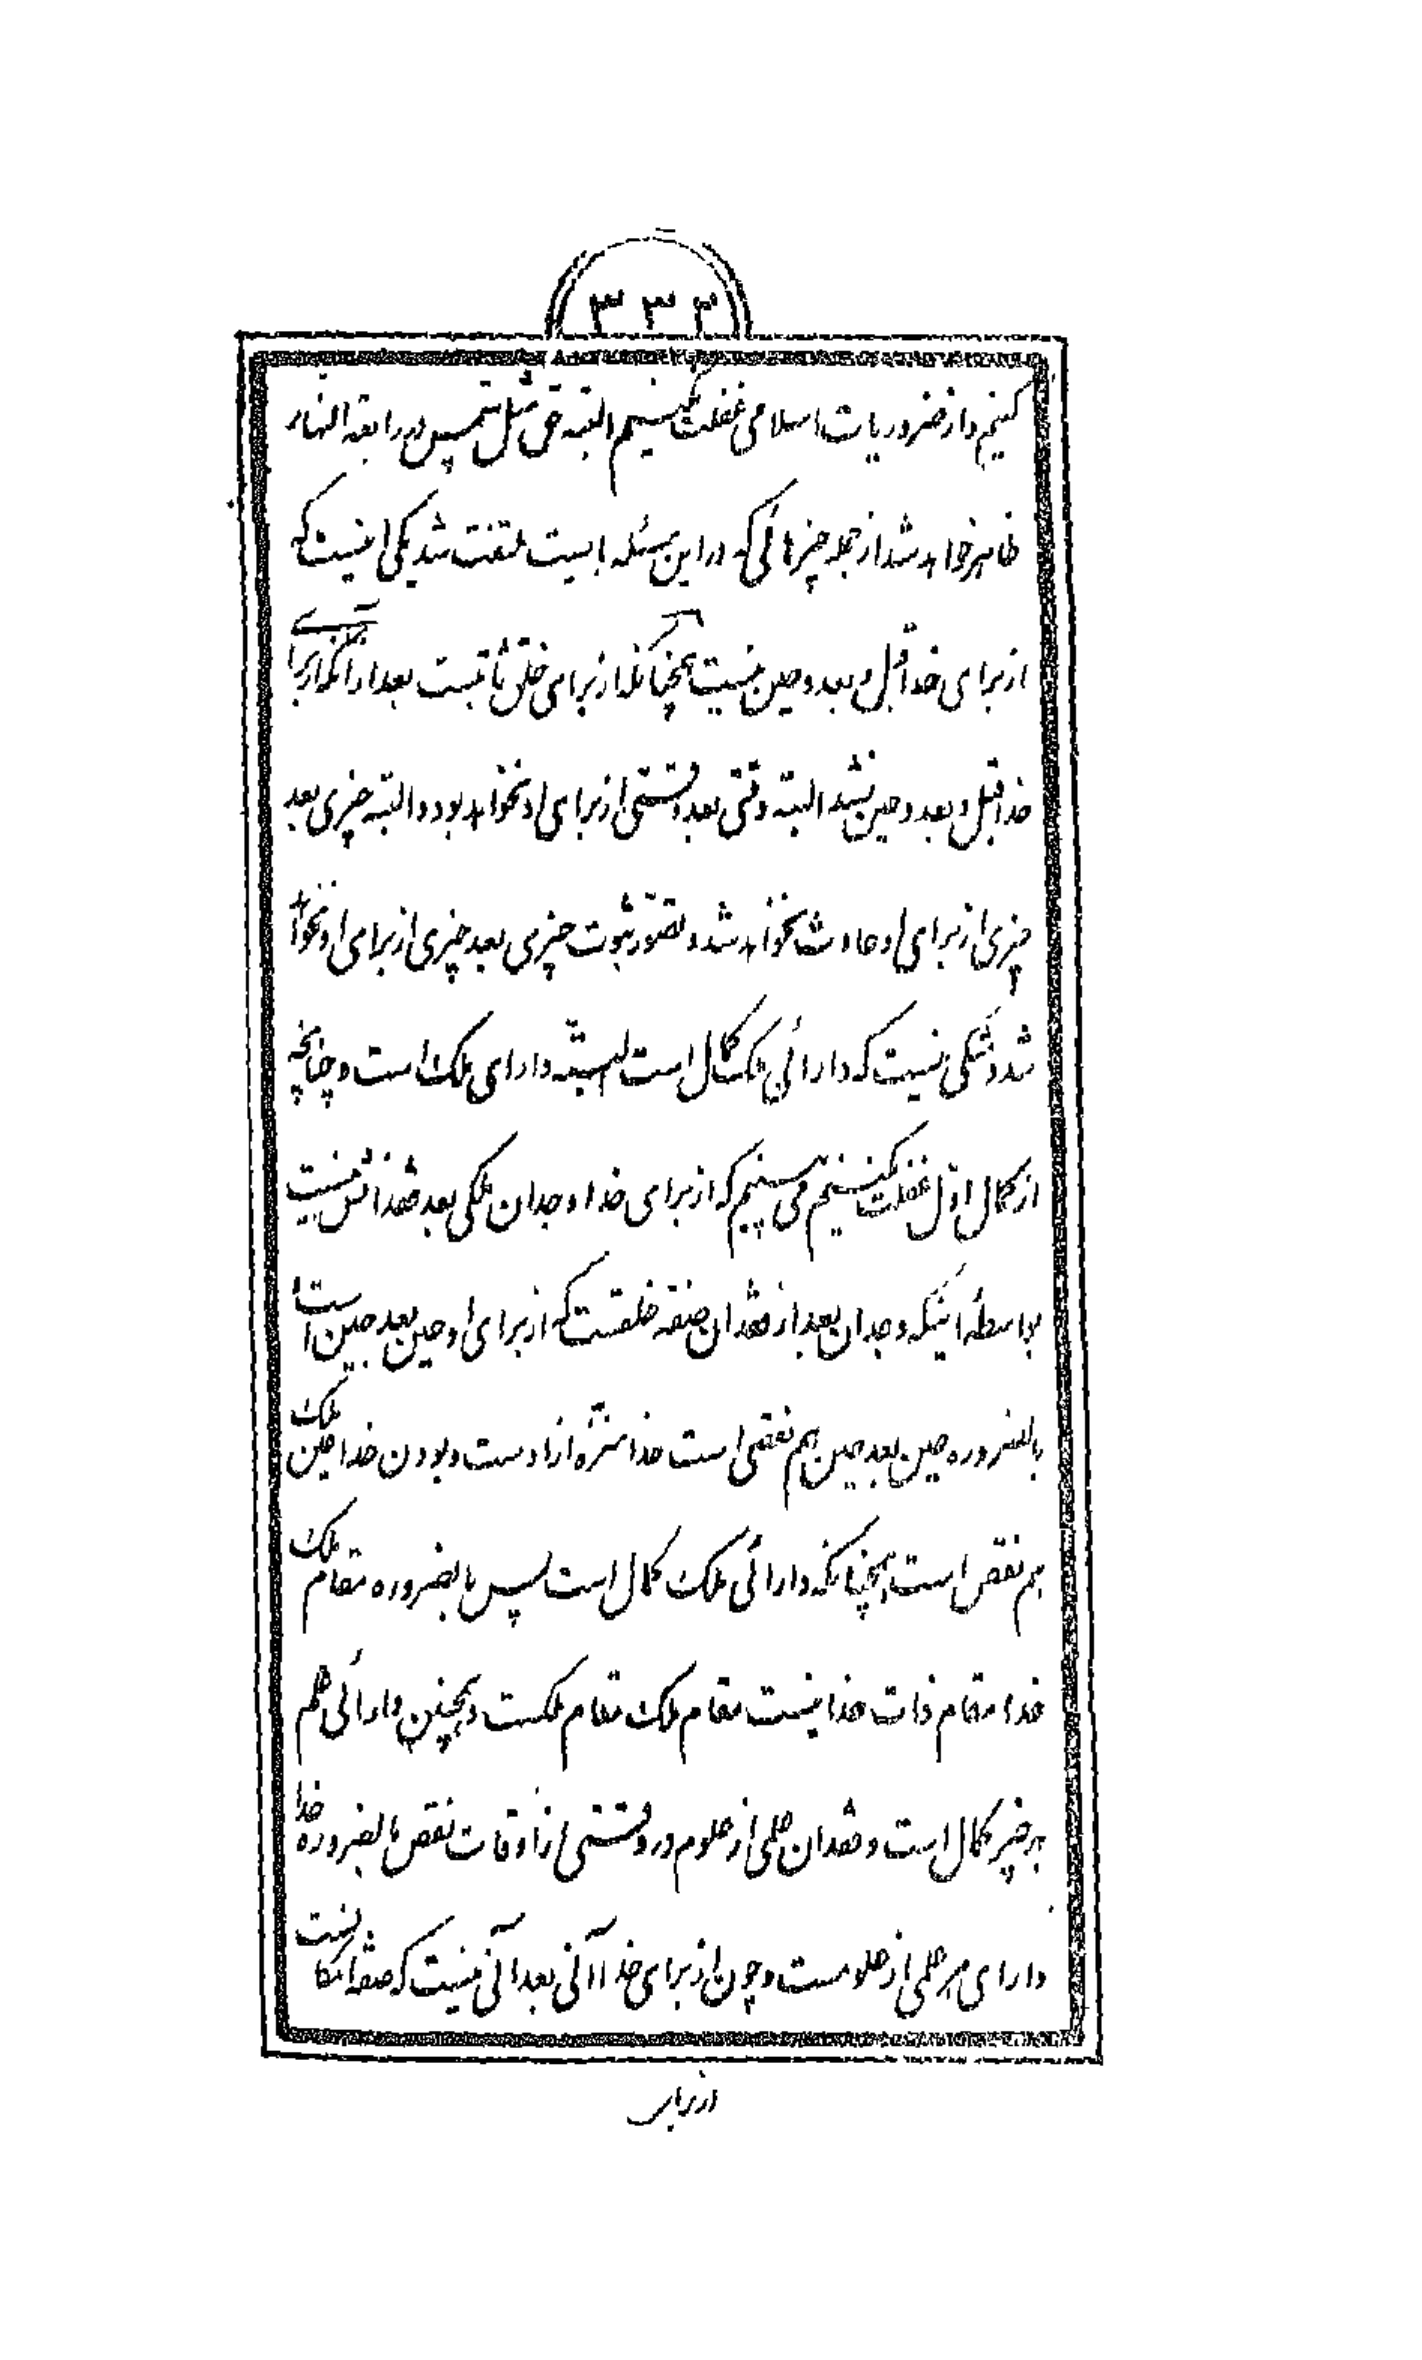 ۳۳۳
کنیم و از ضروریات اسلامی غفلت نکنیم البته حق مثل شمس در رابعة النهار
ظاهر خواهد شد از جمله چیزهائی که در این مسئله بایست ملتفت شد یکی اینست که
از برای خدا قبل و بعد و حین نیست همچنانکه از برای خلق ثابتست بعد از آنکه از برای
خدا قبل و بعد و حین نشد البته وقتی بعد وقتی از برای او نخواهد بود و البته چیزی بعد
چیزی از برای او حادث نخواهد شد و تصور ثبوت چیزی بعد چیزی از برای او نخواهد
شد و شکی نیست که دارائی ملک کمال است البته دارای ملک است و چنانچه
از کمال اول غفلت نکنیم می بینیم که از برای خدا وجدان ملکی بعد فقدانش نیست
بواسطهٔ اینکه وجدان بعد از فقدان صفة خلقست که از برای او حین بعد حین است
بالضروره حین بعد حین هم نقص است خدا منزه از اوست و بودن خدا عین ملک
هم نقص است همچنانکه دارائی ملک کمال است پس بالضروره مقام ملک
خدا مقام ذات خدا نیست مقام ملک مقام ملکست و همچنین دارائی علم
هر چیز کمال است و فقدان علمی از علوم در وقتی از اوقات نقص بالضروره خدا
دارای هر علمی از علومست و چون از برای خدا آنی بعد آنی نیست که صفة امکانست
از برای